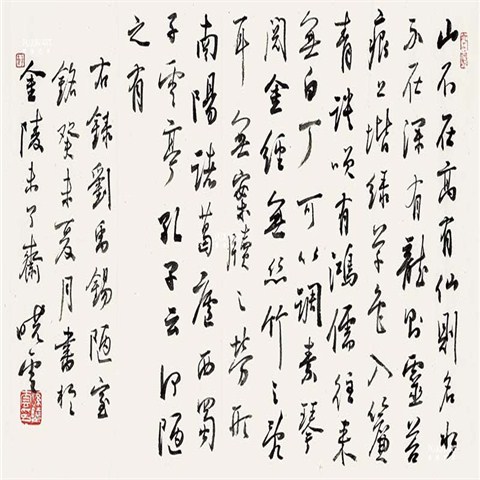 山不在高有仙則名水
不在深有龍則靈苔
痕上堦綠草色入簾
青談笑有鴻儒往來
無白丁可以調素琴
閱金經無絲竹之亂
耳無案牘之勞形
南陽諸葛廬西蜀
子雲亭孔子云何陋
之有
右錄劉禹錫陋室
銘癸未夏月書於
金陵未了齋曉雲